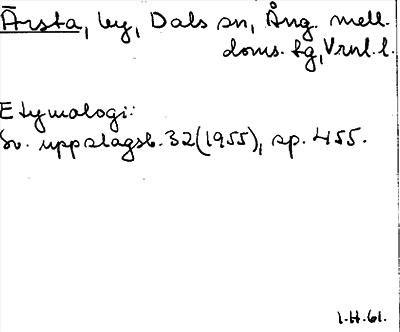 Ärsta, by, Dals sn, Ång. mell.
doms. fg, Vrnl. l.
Etymologi:
Sv. uppslagsb. 32 (1955), sp. 455.
1.H.61.